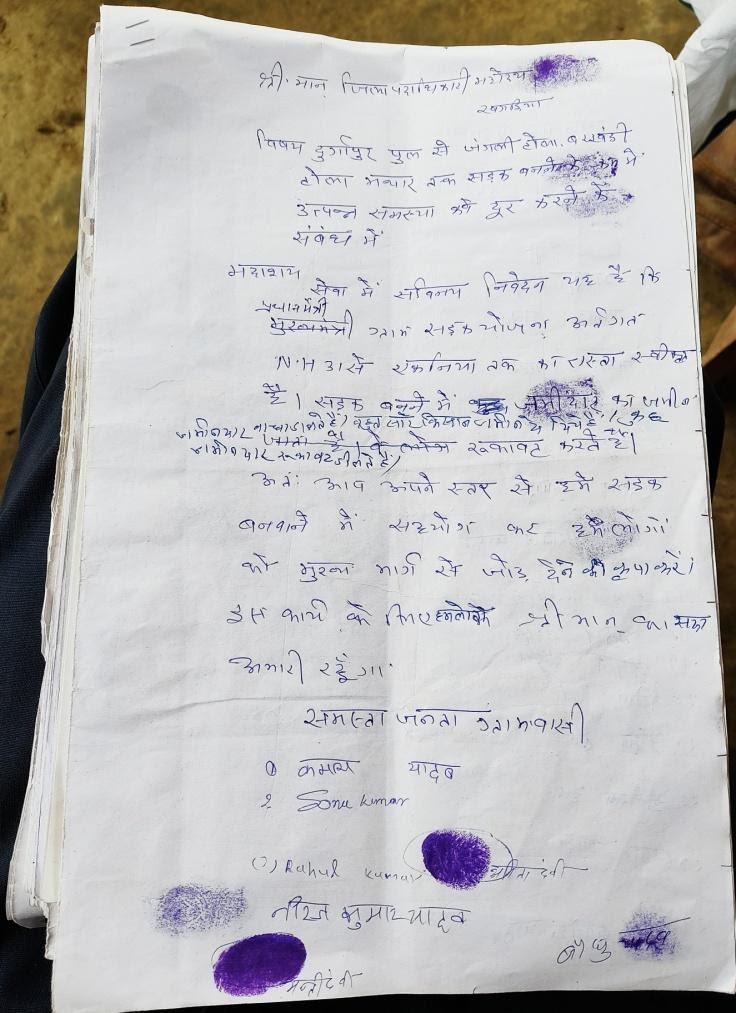 श्री मान जिला पदाधिकारी महोदय
खगड़िया
विषय दुर्गापुर पुल से जंगली टोला, बरखंडी
टोला भथार तक सड़क बनने के में
उत्पन्न समस्या को दूर करने के
संबंध में
महाशय
सेवा में सविनय निवेदन यह है कि
प्रधानमंत्री
मुख्यमंत्री ग्राम सड़क योजना अर्तगत
N.H 31 से एकनिया तक का रास्ता स्वीकृत
है। सड़क बनने में जमींदार का जमीन
जमीनदार बाधा डालते है। बहुत सारे किसान जमीन दे दिये है। कुछ
रूकावट करते है।
जमीनदार रूकावट डालते है।
अतः आप अपने स्तर से हमें सड़क
बनवाने में सहयोग कर हमें लोगों
को मुख्य मार्ग से जोड़ देने की कृपा करें।
इस कार्य के लिए हमलोग श्री मान् का सदा
अभारी रहूँगा
समस्त जनता ग्रामवासी
① यादव
२. Sonu kumar
(३) Rahul kumar देवी
नीरज कुमार यादव
देवी